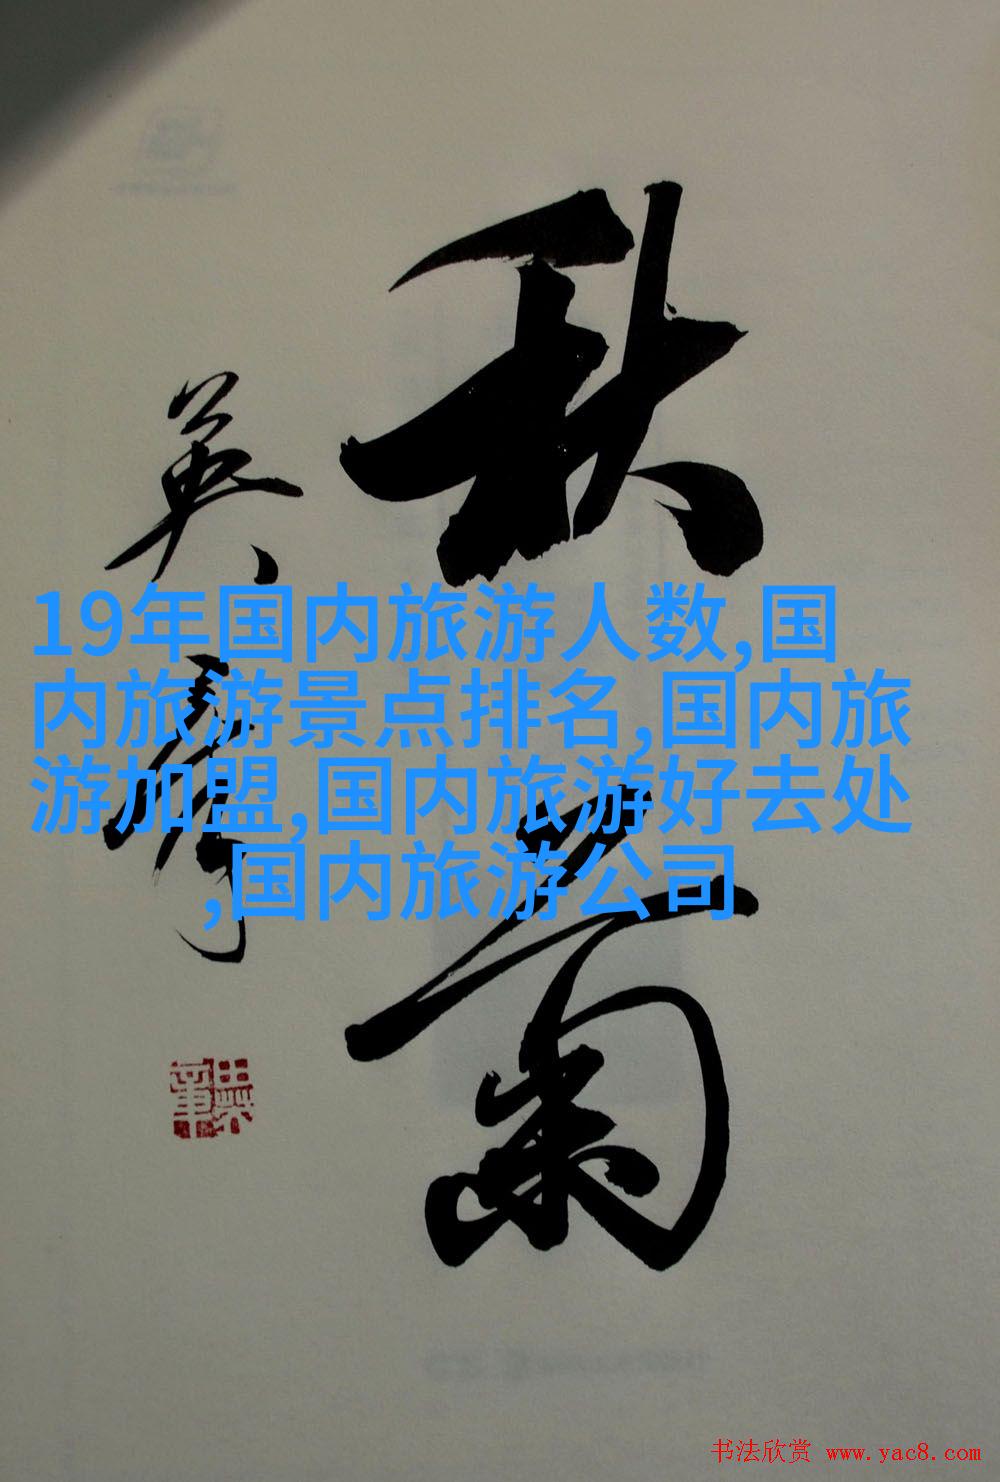 秋菊
英
19年国内旅游人数,国
内旅游景点排名,国内旅
游加盟,国内旅游好去处
,国内旅游公司
田英章
书法欣赏 www.yac8.com